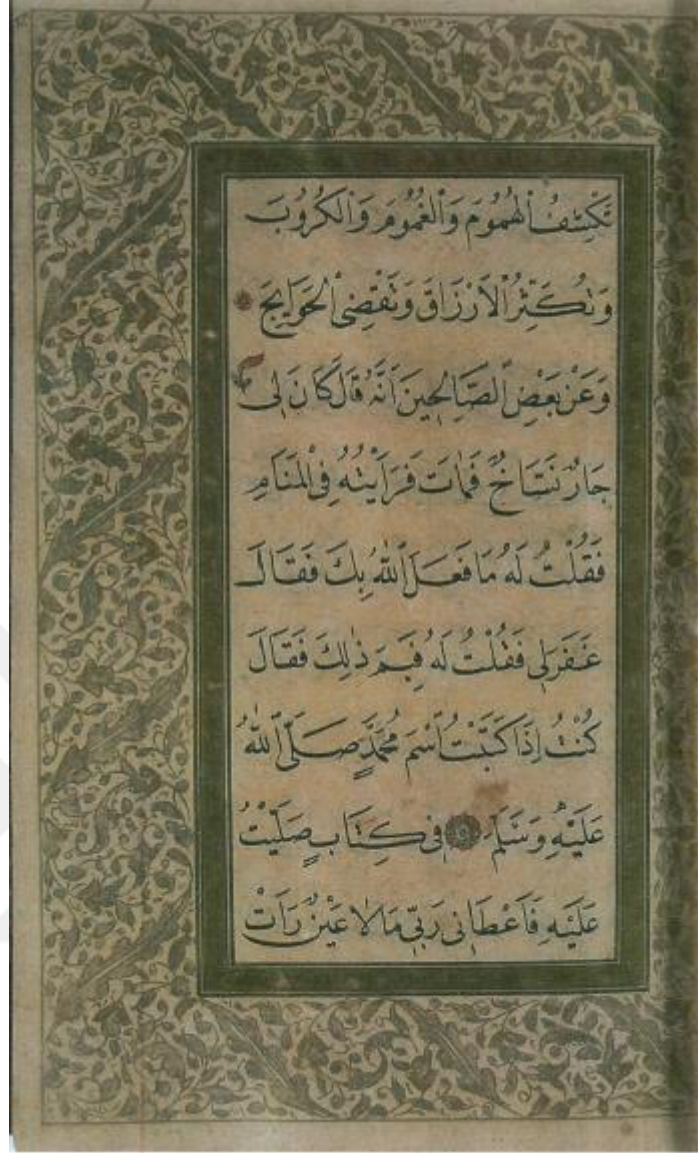 تَكْشِفُ الْهُمُومَ وَالْغُمُومَ وَالْكُرُوبَ
وَتُكَثِّرُ الْاَرْزَاقَ وَتَقْضِى الْحَوَايِجَ
وَعَنْ بَعْضِ الصَّالِحِينَ اَنَّهُ قَالَ كَانَ لِى
جَارٌ نَسَّاخٌ فَمَاتَ فَرَاَيْتُهُ فِى الْمَنَامِ
فَقُلْتُ لَهُ مَا فَعَلَ اللّٰهُ بِكَ فَقَالَ
غَفَرَ لِى فَقُلْتُ لَهُ فَبِمَ ذٰلِكَ فَقَالَ
كُنْتُ اِذَا كَتَبْتُ اسْمَ مُحَمَّدٍ صَلَّى اللّٰهُ
عَلَيْهِ وَسَلَّمَ فِى كِتَابٍ صَلَّيْتُ
عَلَيْهِ فَاَعْطَانِى رَبِّى مَا لَا عَيْنٌ رَاَتْ